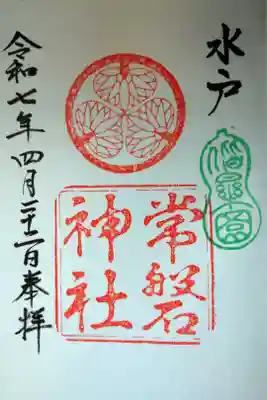 水戸
偕楽園
常磐
神社
令和七年四月二十二日奉拝